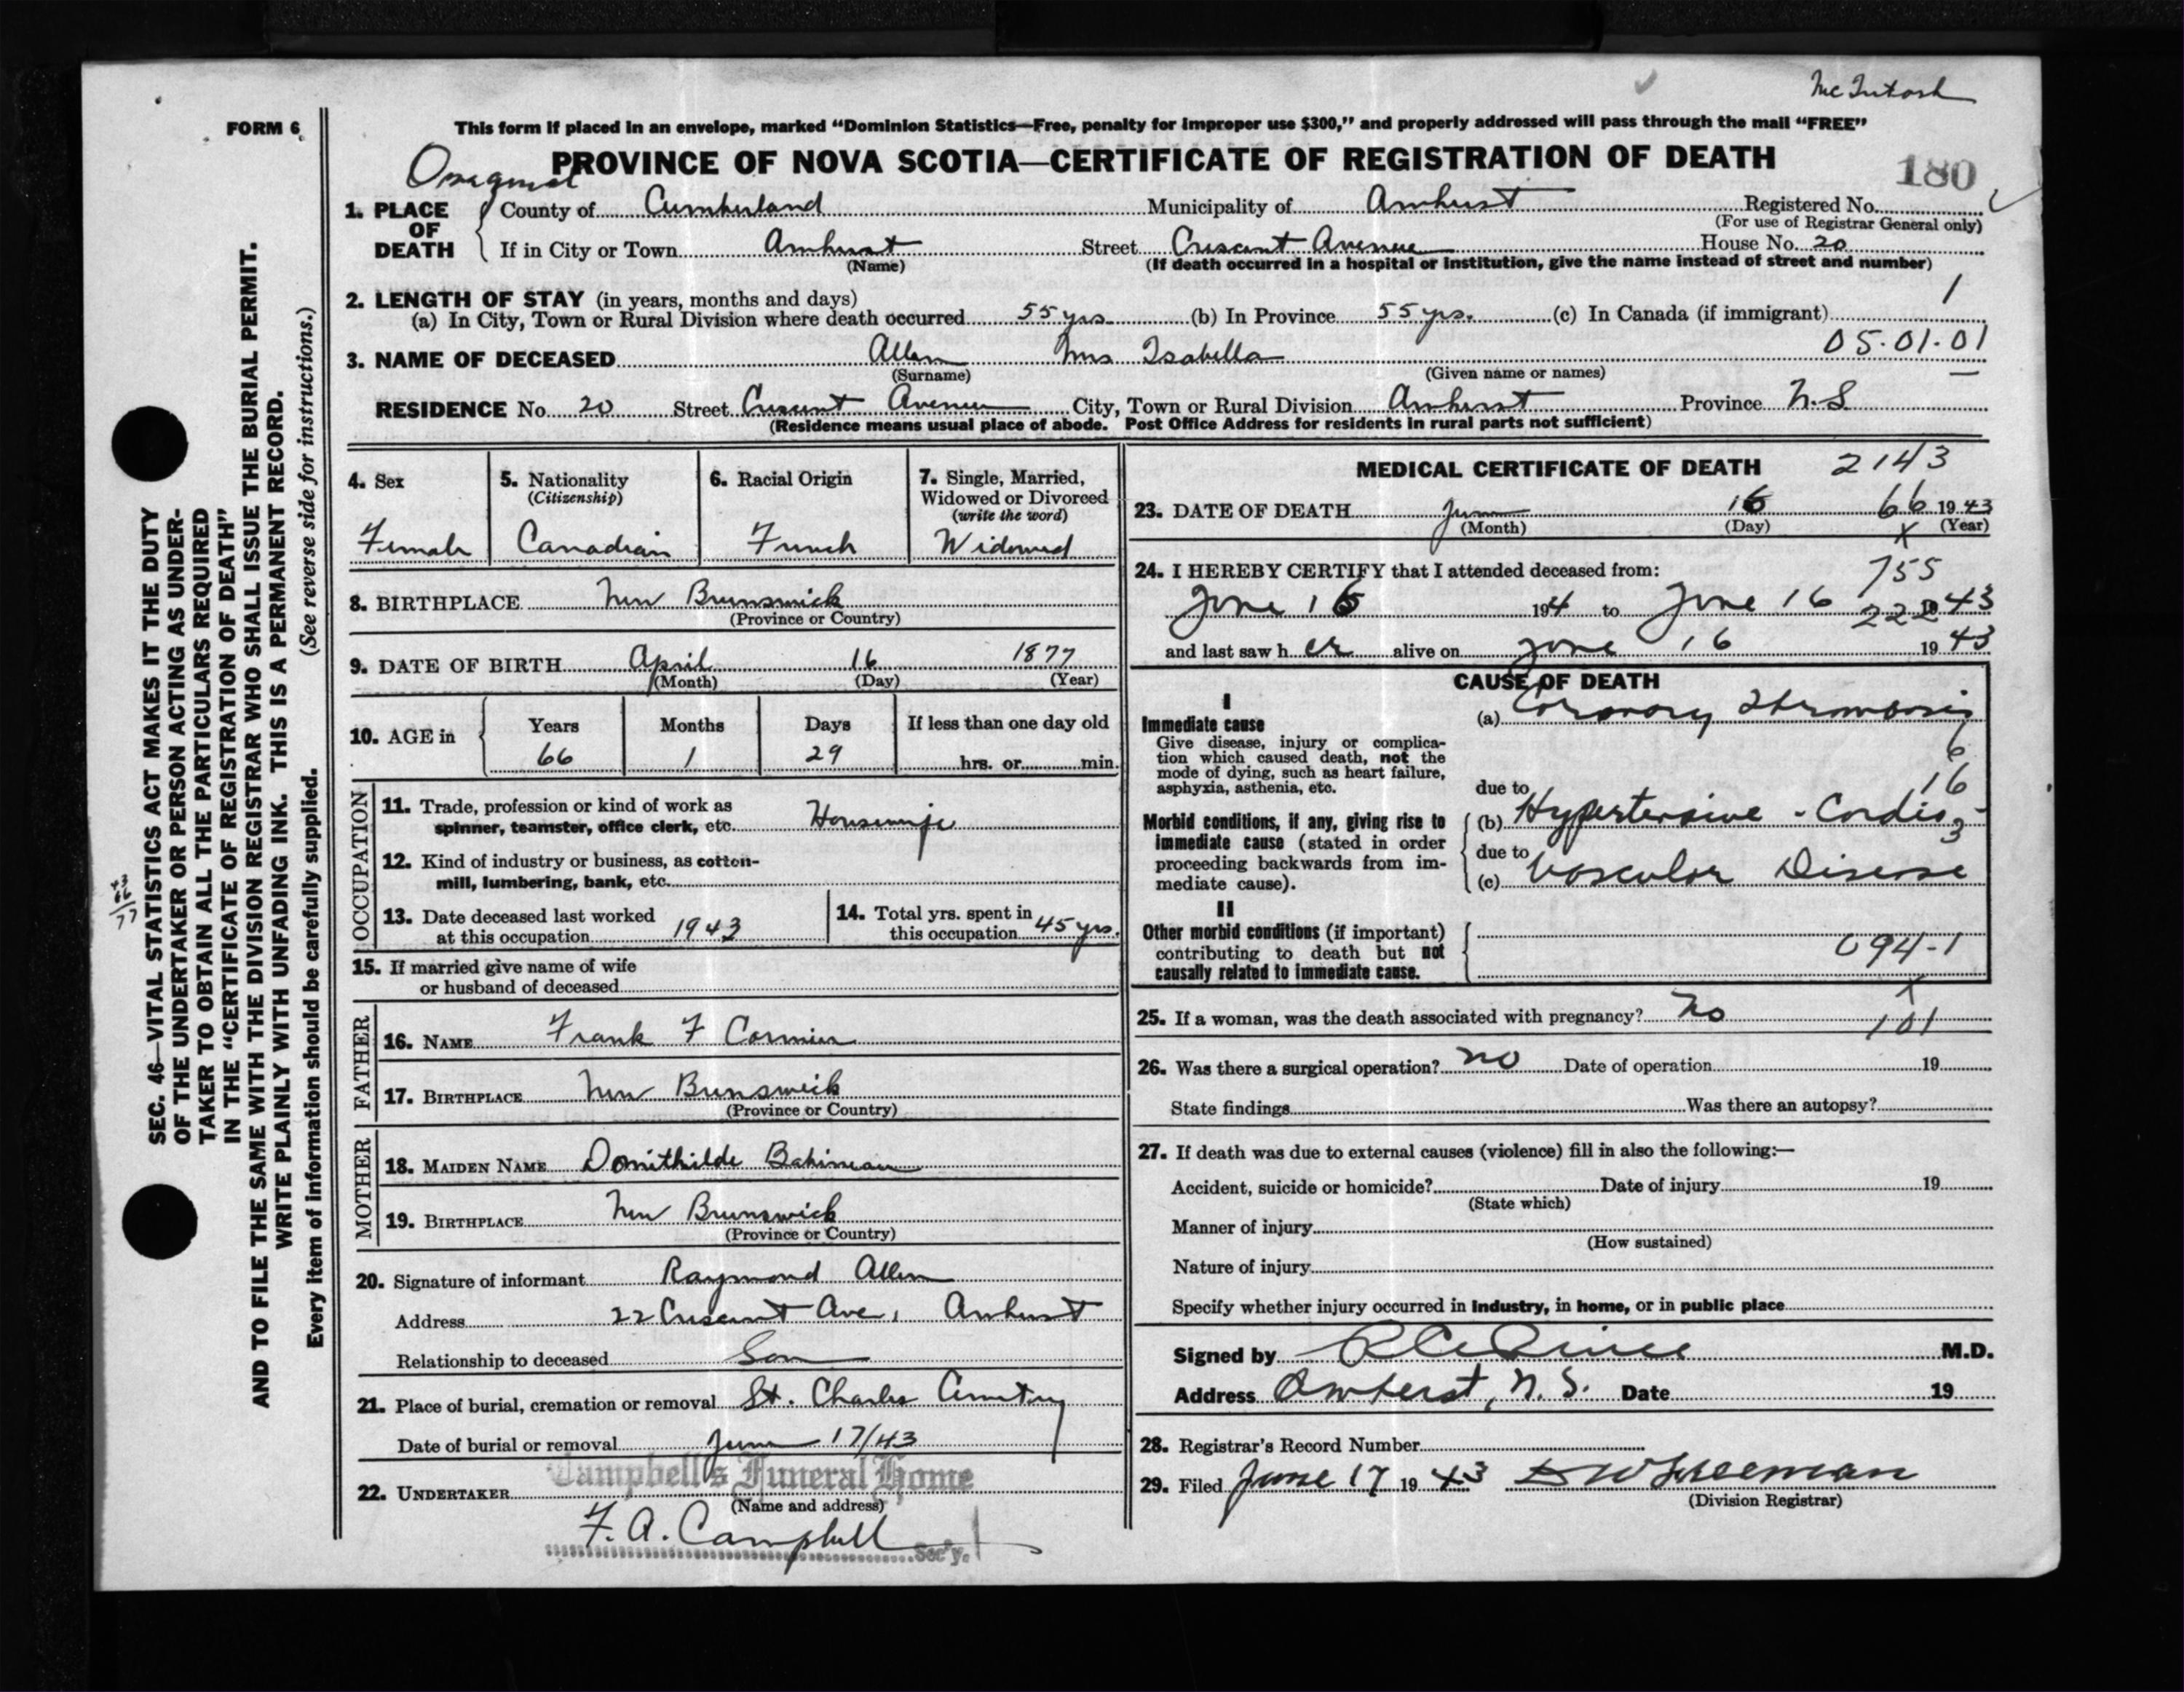 McIntosh
FORM 6
This form if placed in an envelope, marked “Dominion Statistics—Free, penalty for improper use $300,” and properly addressed will pass through the mail “FREE”
PROVINCE OF NOVA SCOTIA—CERTIFICATE OF REGISTRATION OF DEATH
180
1. PLACE OF DEATH
County of Cumberland Municipality of Amherst Registered No.
(For use of Registrar General only)
If in City or Town Amherst Street Crescent Avenue House No. 20
(Name) (If death occurred in a hospital or institution, give the name instead of street and number)
2. LENGTH OF STAY (in years, months and days) 1
(a) In City, Town or Rural Division where death occurred 55 yrs (b) In Province 55 yrs. (c) In Canada (if immigrant)
3. NAME OF DECEASED Allen Mrs Isabella 05.01.01
(Surname) (Given name or names)
RESIDENCE No. 20 Street Crescent Avenue City, Town or Rural Division Amherst Province N.S.
(Residence means usual place of abode. Post Office Address for residents in rural parts not sufficient)
4. Sex
Female
5. Nationality
(Citizenship)
Canadian
6. Racial Origin
French
7. Single, Married,
Widowed or Divorced
(write the word)
Widowed
8. BIRTHPLACE New Brunswick
(Province or Country)
9. DATE OF BIRTH April 16 1877
(Month) (Day) (Year)
10. AGE in
Years Months Days If less than one day old
66 1 29 hrs. or min.
OCCUPATION
11. Trade, profession or kind of work as
spinner, teamster, office clerk, etc. Housewife
12. Kind of industry or business, as cotton-
mill, lumbering, bank, etc.
13. Date deceased last worked
at this occupation 1943
14. Total yrs. spent in
this occupation 45 yrs.
15. If married give name of wife
or husband of deceased
FATHER
16. NAME Frank F Cormier
17. BIRTHPLACE New Brunswick
(Province or Country)
MOTHER
18. MAIDEN NAME Domithilde
19. BIRTHPLACE New Brunswick
(Province or Country)
20. Signature of informant Raymond Allen
Address 22 Crescent Ave, Amherst
Relationship to deceased Son
21. Place of burial, cremation or removal St. Charles Cemetery
Date of burial or removal June 17/43
Campbell's Funeral Home
22. UNDERTAKER
(Name and address)
F. A. Campbell
Sec'y.
MEDICAL CERTIFICATE OF DEATH 2143
23. DATE OF DEATH June 16 66 1943
(Month) (Day) x (Year)
24. I HEREBY CERTIFY that I attended deceased from: 755
June 16 194 to June 16 222 1943
and last saw her alive on June 16 1943
CAUSE OF DEATH
I
Immediate cause
Give disease, injury or complica-
tion which caused death, not the
mode of dying, such as heart failure,
asphyxia, asthenia, etc.
(a) Coronary Thrombosis
6
16
due to
Morbid conditions, if any, giving rise to
immediate cause (stated in order
proceeding backwards from im-
mediate cause).
(b) Hypertensive - Cardio-
3
due to
(c) Vascular Disease
II
Other morbid conditions (if important)
contributing to death but not
causally related to immediate cause.
094-1
x
25. If a woman, was the death associated with pregnancy? No 101
26. Was there a surgical operation? no Date of operation 19
State findings Was there an autopsy?
27. If death was due to external causes (violence) fill in also the following:—
Accident, suicide or homicide? Date of injury 19
(State which)
Manner of injury
(How sustained)
Nature of injury
Specify whether injury occurred in industry, in home, or in public place
Signed by M.D.
Address Amherst, N. S. Date 19
28. Registrar's Record Number
29. Filed June 17 1943
(Division Registrar)
SEC. 46—VITAL STATISTICS ACT MAKES IT THE DUTY
OF THE UNDERTAKER OR PERSON ACTING AS UNDER-
TAKER TO OBTAIN ALL THE PARTICULARS REQUIRED
IN THE “CERTIFICATE OF REGISTRATION OF DEATH”
AND TO FILE THE SAME WITH THE DIVISION REGISTRAR WHO SHALL ISSUE THE BURIAL PERMIT.
WRITE PLAINLY WITH UNFADING INK. THIS IS A PERMANENT RECORD.
(See reverse side for instructions.)
Every item of information should be carefully supplied.
43
66
77